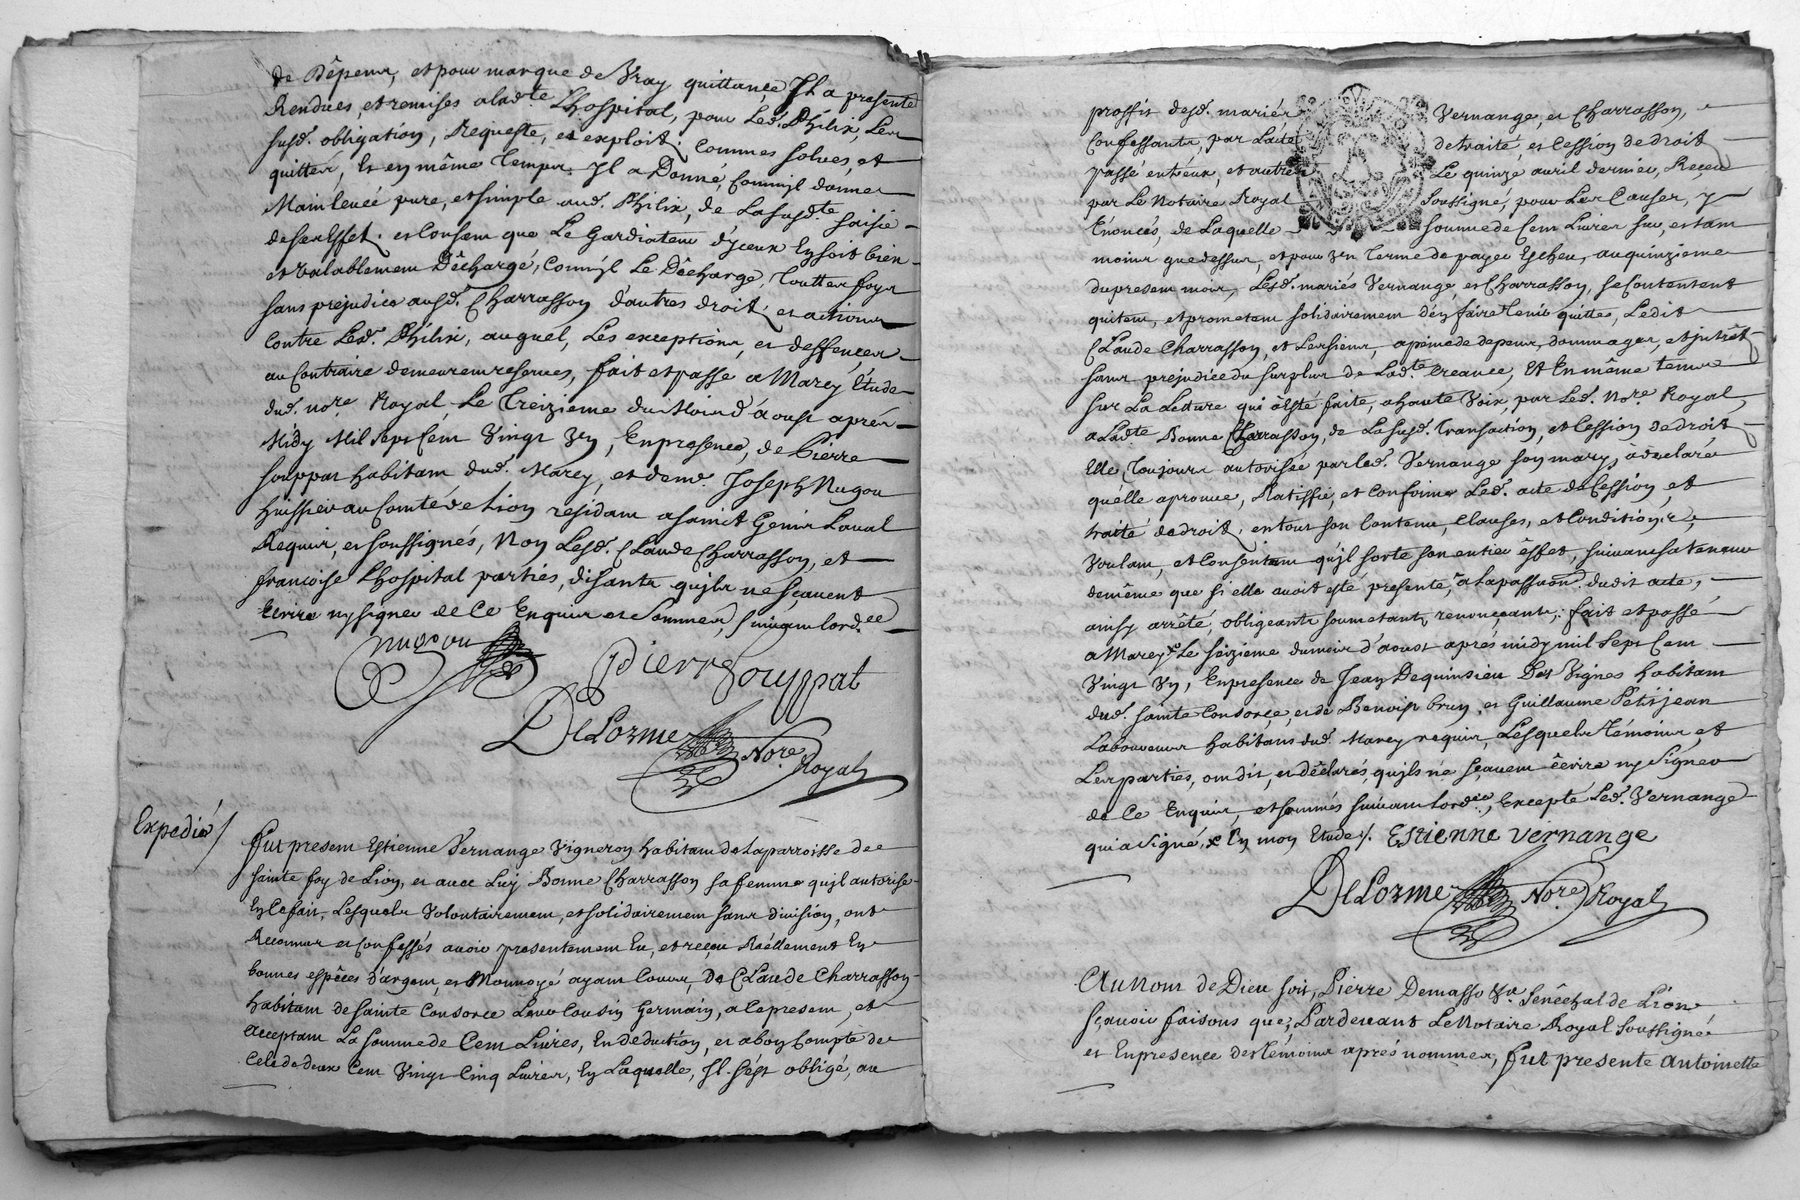 de Dêpens, et pour marque de Vray quittance Jl a presente
Rendues, et remises a lad.te Lhospital, pour Led. Philix, Les
susd. obligation, Requeste, et exploit. Comme solvés, et
quitter, Et en même Temps. Jl a Donné, Comm'jl donne
Mainleuée pure, et simple aud. Philix, de La susd.te saisie
de ses Effet. et Consent que Le Gardiateur d'yceux En soit bien
et valablement Dêchargé, Comm'jl Le Dêcharge, Toutte foys
sans prejudice ausd. Charrasson d'autres droit, et actions
Contre Led. Philix, auquel, Les exceptions, et deffences
au Contraire demeurent reserves, fait et passé a Marcy Étude
dud. no.re Royal, Le Treizieme du Mois d'aoust aprés
Midy Mil sept Cent Vingt Vn, En presence, de Pierre
Souppat habitant dud. Marcy, et de m.e Joseph Nugou
huissier au Comté de Lion residant a saint Genis Laual
Requis, et soussignés, Non Lesd. Claude Charrasson, et
françoise Lhospital parties, disants qu'jls ne sçauent
Ecrire ny signer de Ce Enquis et Sommés, suiuant lord.ce
nugou
Pierre Souppat
DeLorme No.re Royal
Expedié /
Fut present Estienne Vernange Vigneron habitant de La parroisse de
sainte foy de Lion, et auec Luy Bonne Charrasson sa femme qu'jl autorise
En Ce fait, Lesquels Volontairement, et solidairement sans diuision, ont
Reconnus et Confessés auoir presentement Eu, et reçeu Rêellement En
bonnes espêces d'argent, et Monnoyé ayant Cours, De Claude Charrasson
habitant de sainte Consorce Leur Cousin Germain, a Ce present, et
acceptant La somme de Cent Liures, En deduction, et a bon Compte de
Celle de deux Cent Vingt Cinq Liures, En Laquelle, Jl s'ést obligé, au
proffit desd. mariés Vernange, et Charrasson,
Confessants, par Lacte de traité, et Cession de droit
passé entréux, et autres Le quinze auril dernier, Reçeu
par Le Notaire Royal Soussigné, pour Les Causes, y
Enoncés, de Laquelle somme de Cent Liures sus, et tant
moins que dessus, et pour Vn Terme de payer Escheu, au quinzieme
du present mois, Lesd. mariés Vernange, et Charrasson, se Contentent
quitent, et prometent solidairement d'én faire Tenir quittes, Ledit
Claude Charrasson, et Les siens, a peine de depens, dommages, et jntrêt
sans prejudice du surplus de Lad.te Creance, Et En même temps
sur La Letture qui â esté faite, a haute Voix, par Led. No.re Royal,
a Lad.te Bonne Charrasson, de La susd. Transaction, et Cession de droit
Elle, Toujours autorisée par Led. Vernange son mary, a declaré
quélle aprouue, Ratiffie, et Confirme Led. acte de Cession, et
traité de droit, en tout son Contenu, Clauses, et Conditions,
Voulant, et Consentant qu'jl sorte son entier êffet, suiuant sa teneur
de même que si elle auoit esté presente, â la passation dudit acte,
ainsy arrêté, obligeants soumetants, renonçants, fait et passé
a Marcy x Le seizieme du mois d'aoust aprés midy mil sept Cent
Vingt Vn, En presence de Jean Dequinsieu Des Vignes habitant
dud. sainte Consorce, et de Benoist brun, et Guillaume Petitjean
Laboureurs habitans dud. Marcy requis, Lesquels témoins, et
Les parties, ont dit, et dêclarés, qu'jls ne sçauent êcrire ny Signer
de Ce Enquis, et sommés suiuant lord.ce, Excepté Led. Vernange
qui a signé. x En mon Etude /. Estienne vernange
DeLorme No.re Royal
Au Nom de Dieu soit, Pierre Demasso Senêchal de Lion
sçauoir faisons que, Pardeuant Le Notaire Royal Soussigné
et En presence des témoins aprés nommés, fut presente Antoinette